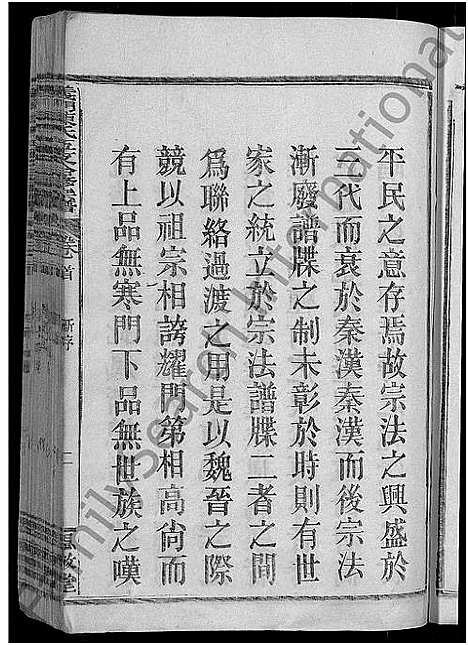 平民之意存焉故宗法之興盛於
三代而衰於秦漢秦漢而後宗法
漸廢譜牒之制未彰於時則有世
家之統立於宗法譜牒二者之間
爲聯絡過渡之用是以魏晉之際
競以祖宗相誇耀門第相高尙而
有上品無寒門下品無世族之嘆
卷首
新序